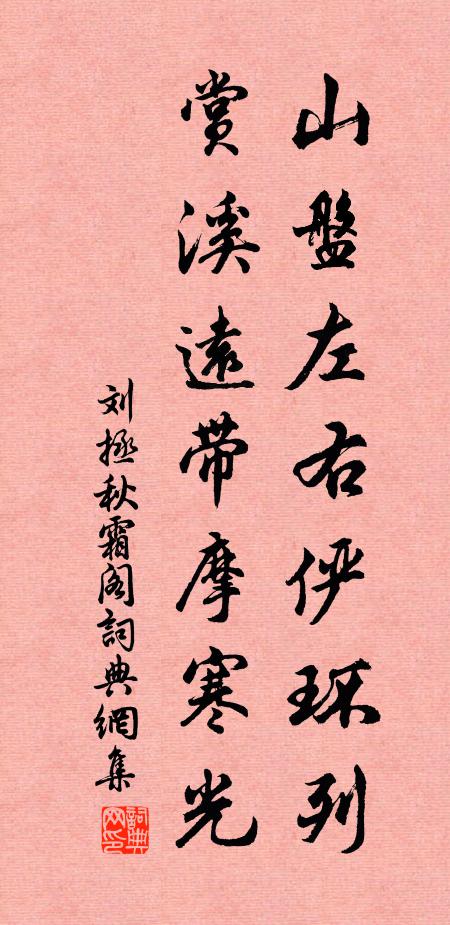 山盤左右俨环列
賞溪遠带摩寒光
刘拯秋霜阁詞典網集
詞典网印